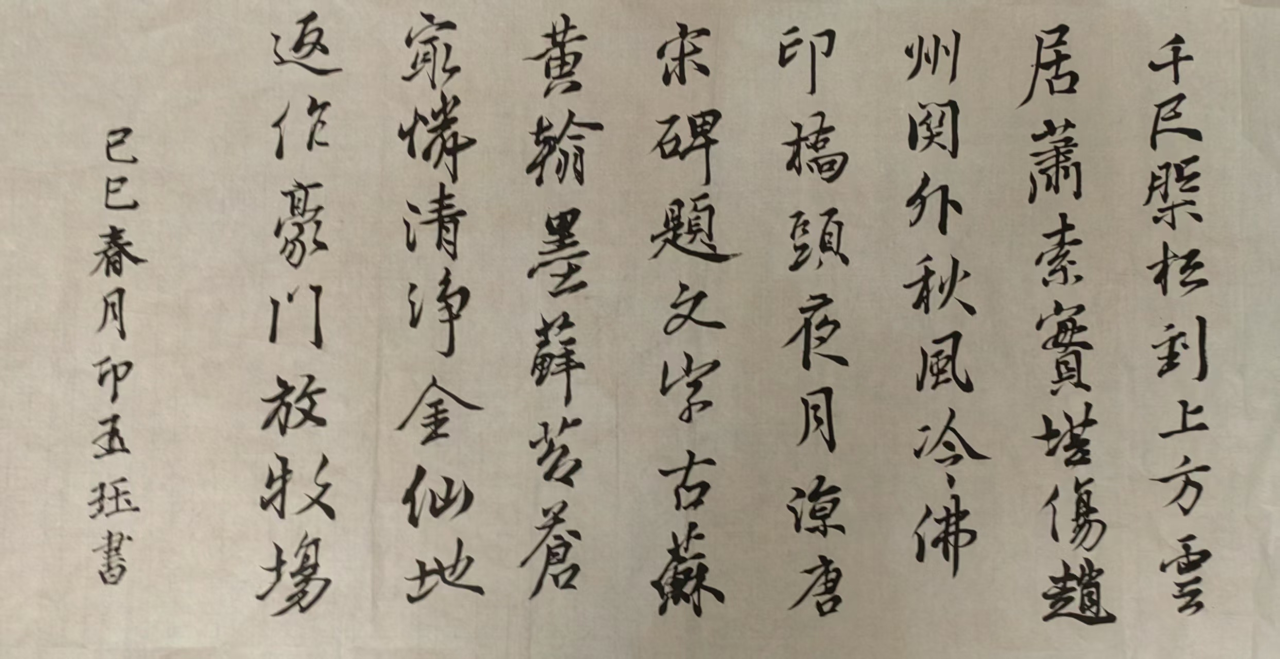 千尺槃松到上方雲
居蕭索寶塔傷趙
州関外秋風冷佛
印橋頭夜月涼唐
宋碑題文字古蘇
黄翰墨蘚苔蒼
冣憐清浄金仙地
返作豪門放牧場
己巳春月印書